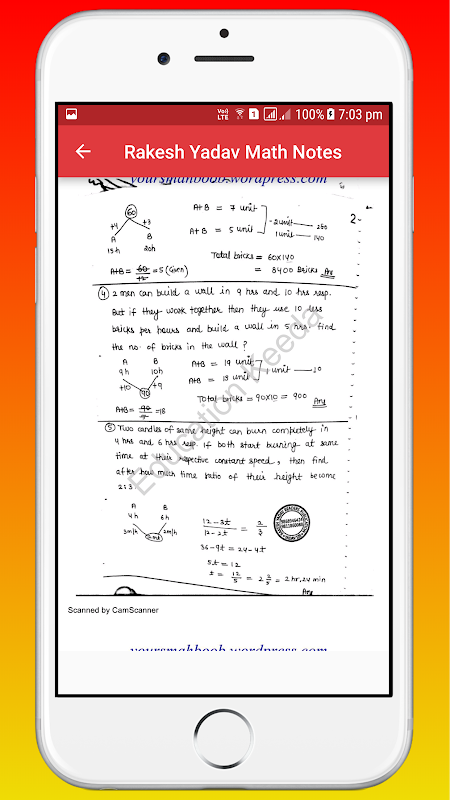 VoLTE 1 100% 7:03 pm
Rakesh Yadav Math Notes
yoursmahboob.wordpress.com
2-
60
+4 +3
A B
15h 20h
A+B = 60/12 = 5 (Given)
A+B = 7 unit
A+B = 5 unit
2 unit — 280
1 unit — 140
Total bricks = 60x140
= 8400 Bricks Ans
④ 2 men can build a wall in 9 hrs and 10 hrs resp.
But if they work together then they use 10 less
bricks per hours and build a wall in 5 hrs. find
the no. of bricks in the wall ?
A B
9h 10h
+10 +9
90
A+B = 90/5 = 18
A+B = 19 unit
A+B = 18 unit
1 unit — 10
Total bricks = 90x10 = 900 Ans
⑤ Two candles of same height can burn completely in
4 hrs and 6 hrs resp. if both start burning at same
time at their respective constant speed, then find
after how much time ratio of their height become
2:3.
A B
4h 6h
3m/h 2m/h
12mt
12-3t/12-2t = 2/3
36-9t = 24-4t
5t = 12
t = 12/5 = 2 2/5 = 2 hr, 24 min
Ans
Education Keeda
Scanned by CamScanner
yoursmahboob.wordpress.com